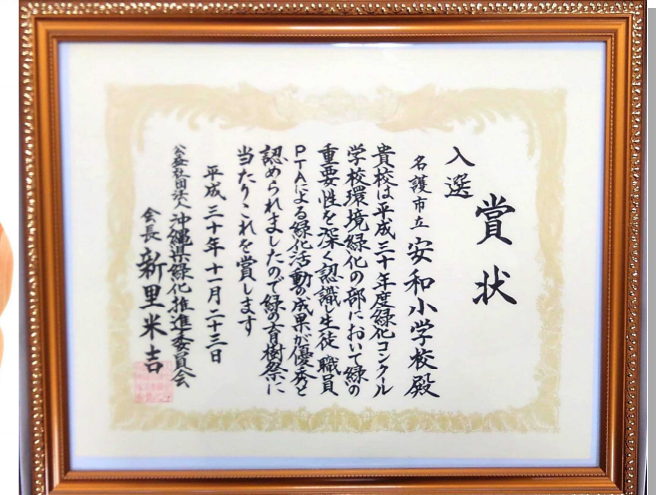 賞状
入選
名護市立 安和小学校殿
貴校は平成三十年度緑化コンクール
学校環境緑化の部において緑の
重要性を深く認識し生徒、職員
PTAによる緑化活動の成果が優秀と
認められましたので緑の育樹祭に
当たりこれを賞します
平成三十年十一月二十三日
公益社団法人 沖縄県緑化推進委員会
会長 新里米吉